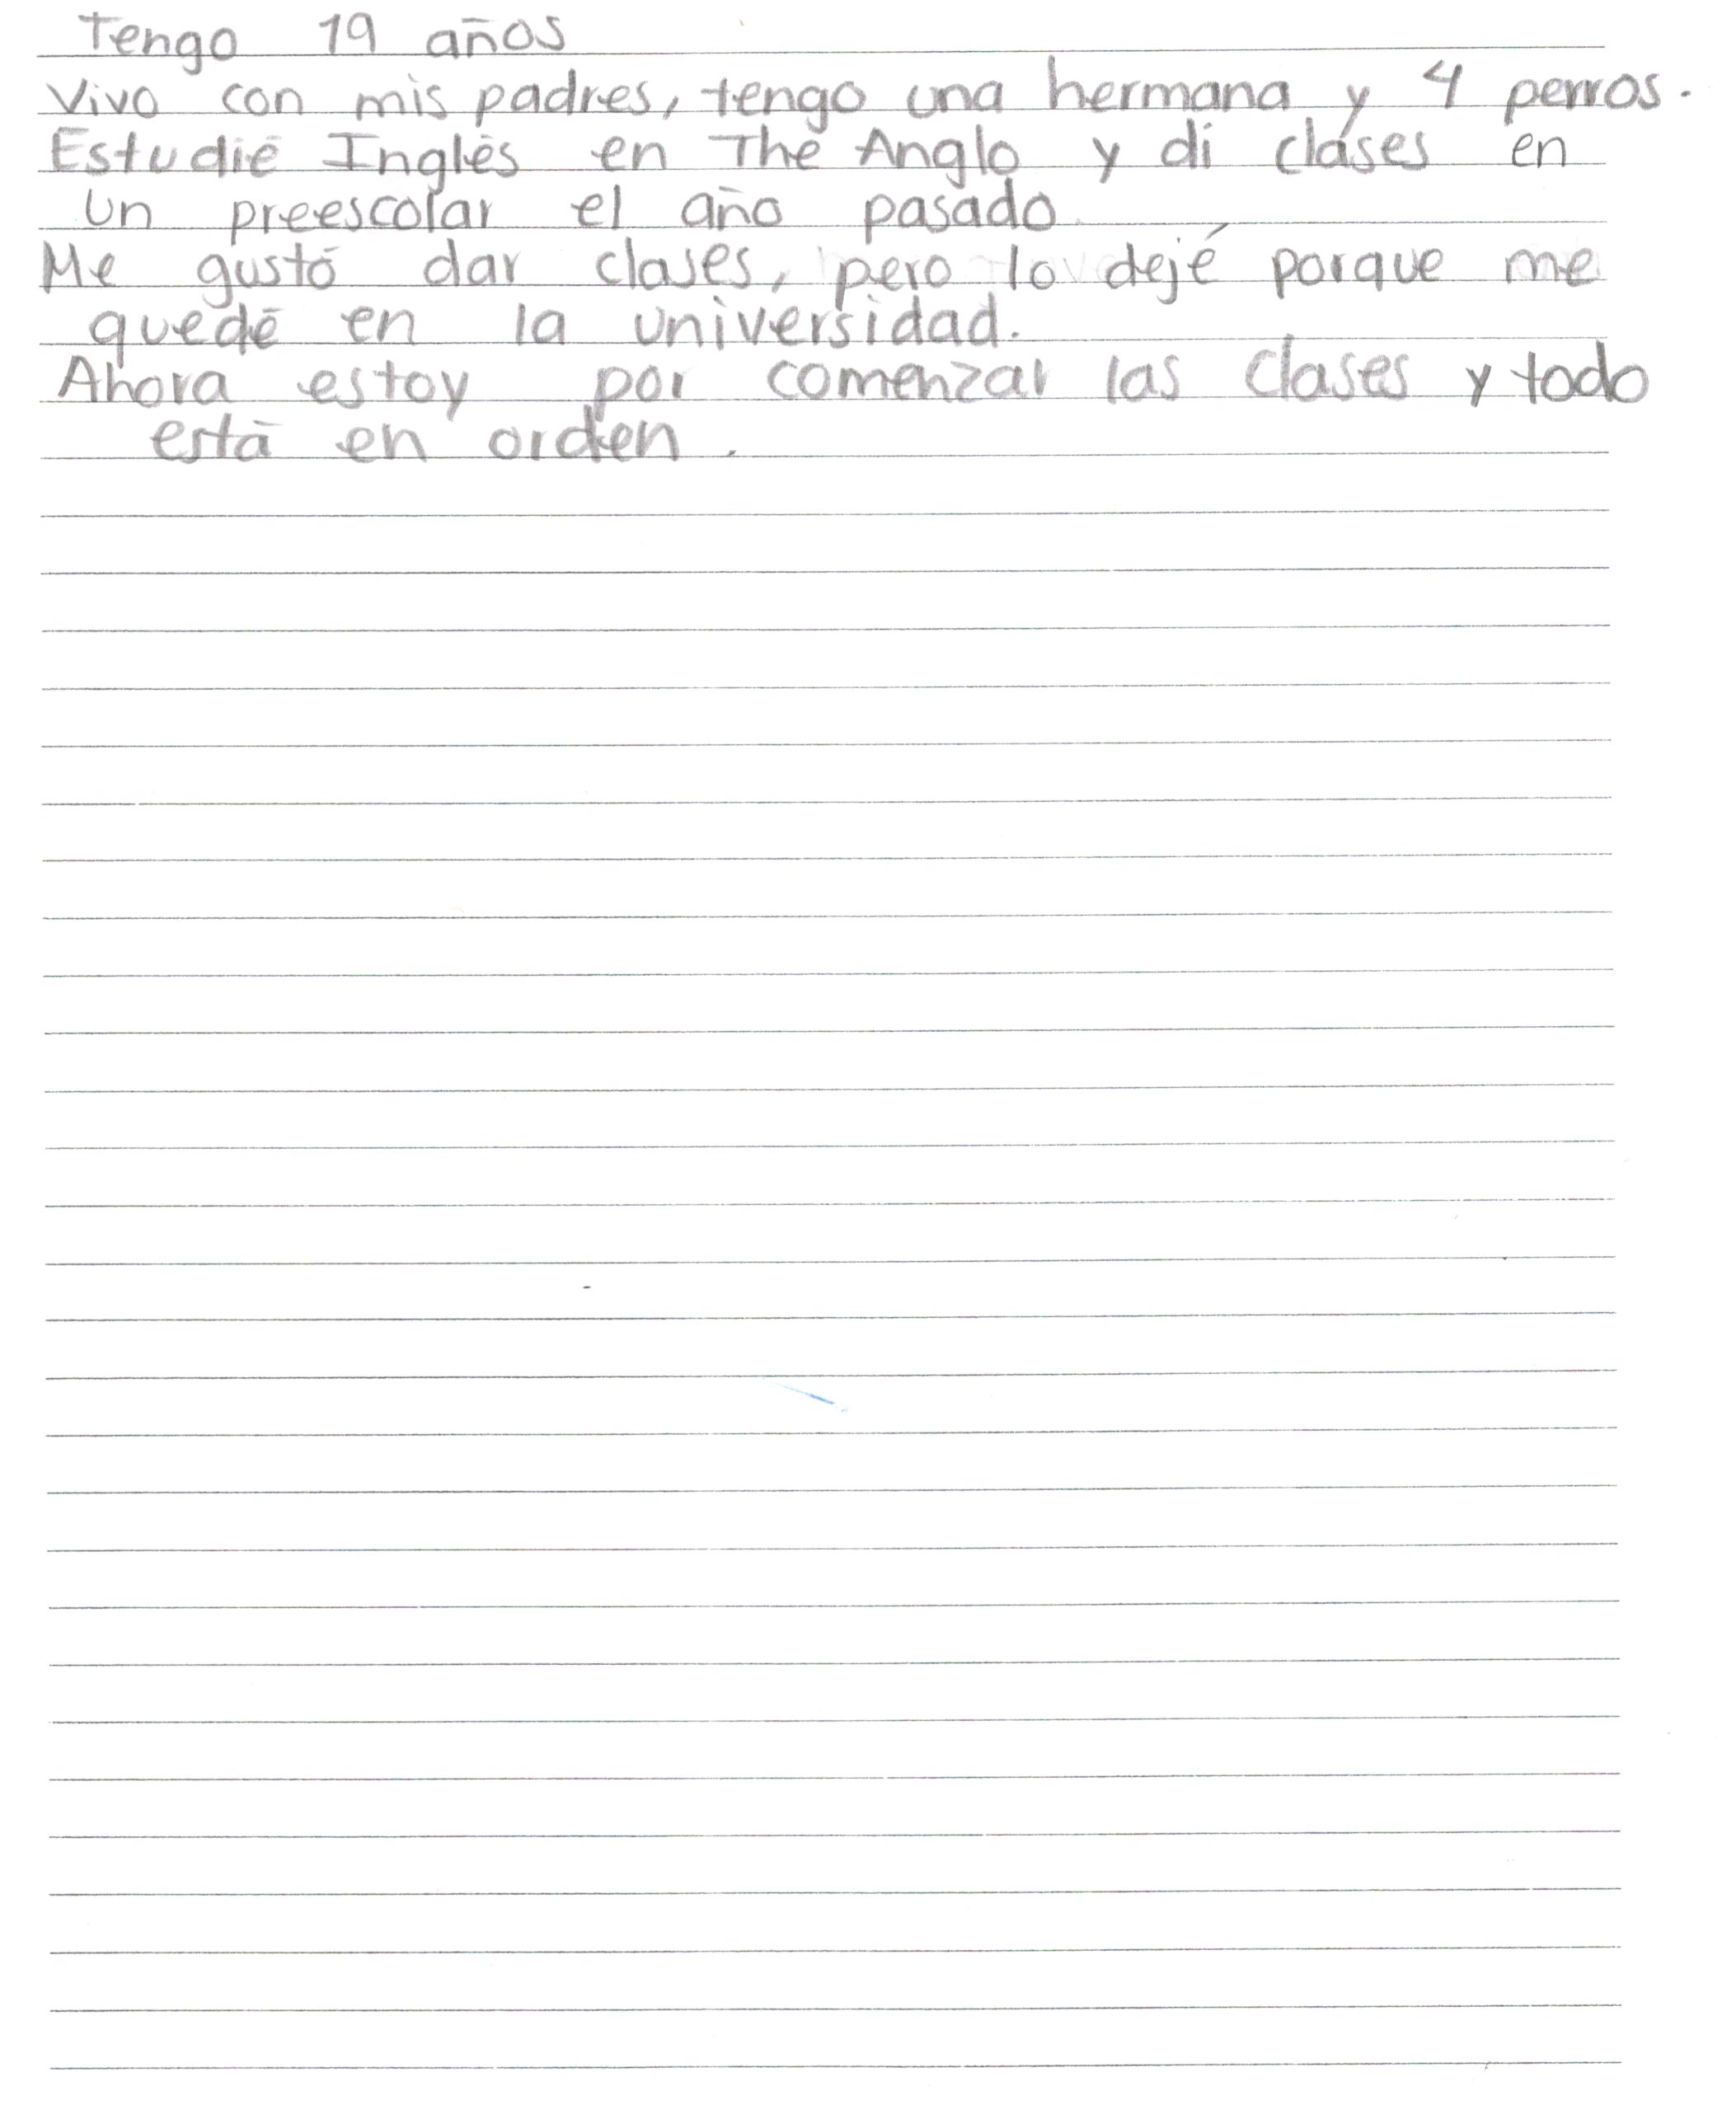 Tengo 19 años
Vivo con mis padres, tengo una hermana y 4 perros.
Estudié Inglés en The Anglo y di clases en
un preescolar el año pasado
Me gustó dar clases, pero lo dejé porque me
quedé en la universidad.
Ahora estoy por comenzar las clases y todo
está en orden.